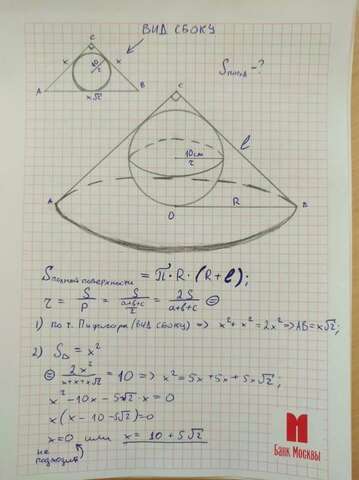 ВИД СБОКУ
C
10
r
x
x
A
B
x√2
Sпов.д - ?
C
l
10см
r
A
O
R
B
Sполной поверхности = π·R·(R+l);
r = S/P = S/((a+b+c)/2) = 2S/(a+b+c) ⊜
1) по т. Пифагора (вид сбоку) => x²+x²=2x² => AB=x√2;
2) S△ = x²
⊜ 2x²/(x+x+x√2) = 10 => x²=5x+5x+5x√2;
x²-10x-5√2·x=0
x(x-10-5√2)=0
x=0 или x=10+5√2
не подходит
М
Банк Москвы